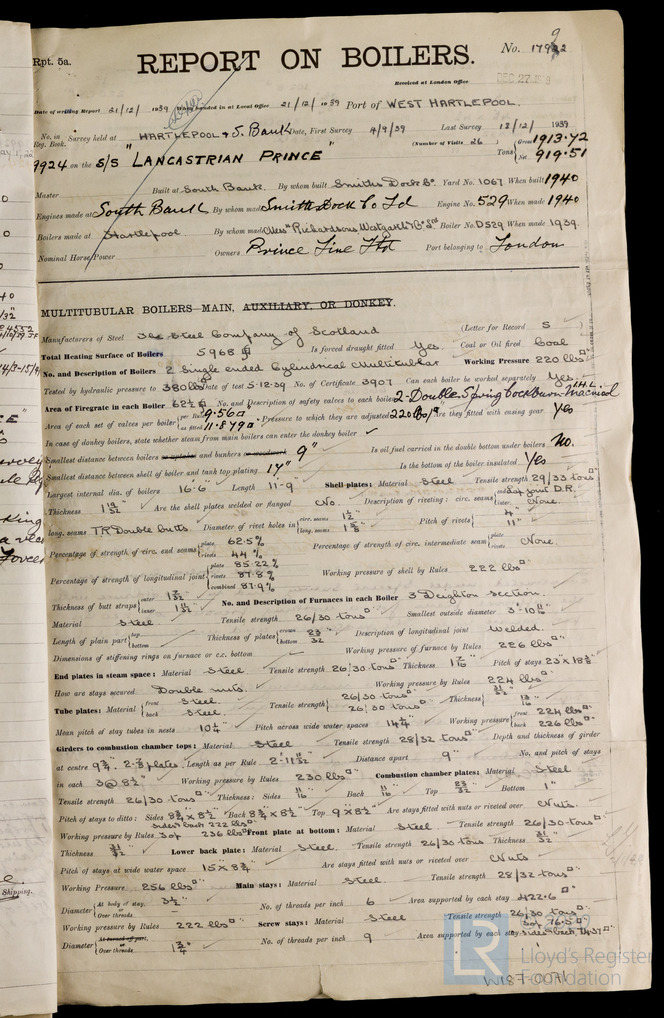 Rpt. 5a.
REPORT ON BOILERS.
No. 17922
Received at London Office
DEC 27 1939
Date of writing Report 21/12/1939 When handed in at Local Office 21/12/1939 Port of WEST HARTLEPOOL.
No. in Reg. Book. Survey held at HARTLEPOOL & S. Bank Date, First Survey 4/9/39 Last Survey 18/12/1939
(Number of Visits 26)
9924 on the S/S "LANCASTRIAN PRINCE" Tons Gross 1913.72 Net 919.51
Master Built at South Bank. By whom built Smiths Dock Co. Yard No. 1067 When built 1940
Engines made at South Bank By whom made Smith's Dock Co Ltd Engine No. 529 When made 1940
Boilers made at Hartlepool By whom made Mess Richardsons, Westgarth & Co Ltd Boiler No. D529 When made 1939.
Nominal Horse Power Owners Prince Line Ltd Port belonging to London
MULTITUBULAR BOILERS MAIN, AUXILIARY, OR DONKEY.
Manufacturers of Steel The Steel Company of Scotland (Letter for Record S)
Total Heating Surface of Boilers 5968 Is forced draught fitted Yes Coal or Oil fired Coal
No. and Description of Boilers 2 Single ended Cylindrical Multitubular Working Pressure 220 lbs
Tested by hydraulic pressure to 380 lbs Date of test 5.12.39 No. of Certificate 3907 Can each boiler be worked separately Yes.
Area of Firegrate in each Boiler 62½ No. and Description of safety valves to each boiler 2-Double Spring Cockburn-MacNicol H.L.
Area of each set of valves per boiler per Rule 9.56 as fitted 11.879 Pressure to which they are adjusted 220 lbs Are they fitted with easing gear Yes
In case of donkey boilers, state whether steam from main boilers can enter the donkey boiler
Smallest distance between boilers or uptakes and bunkers or woodwork 9" Is oil fuel carried in the double bottom under boilers No.
Smallest distance between shell of boiler and tank top plating 17" Is the bottom of the boiler insulated Yes
Largest internal dia. of boilers 16'6" Length 11-9 Shell plates: Material Steel Tensile strength 29/33 tons
Thickness Are the shell plates welded or flanged No. Description of riveting: circ. seams end Lap joint D.R. inter. None.
long. seams T.R. Double butts. Diameter of rivet holes in circ. seams long. seams Pitch of rivets 4" 11"
Percentage of strength of circ. end seams plate 62.5% rivets 44% Percentage of strength of circ. intermediate seam plate rivets None.
Percentage of strength of longitudinal joint plate 85.22% rivets 87.8% combined 87.9% Working pressure of shell by Rules 222 lbs
Thickness of butt straps outer inner No. and Description of Furnaces in each Boiler 3 Deighton Section.
Material Steel. Tensile strength 26/30 tons Smallest outside diameter
Length of plain part top bottom Thickness of plates crown bottom 23/32 Description of longitudinal joint Welded.
Dimensions of stiffening rings on furnace or c.c. bottom Working pressure of furnace by Rules 226 lbs
End plates in steam space: Material Steel Tensile strength 26/30 tons Thickness Pitch of stays
How are stays secured Double nuts. Working pressure by Rules 224 lbs
Tube plates: Material front Steel. back Steel. Tensile strength 26/30 tons 26/30 tons Thickness
Mean pitch of stay tubes in nests 10¼ Pitch across wide water spaces 14¼ Working pressure front 224 lbs back 226 lbs
Girders to combustion chamber tops: Material Steel Tensile strength 28/32 tons Depth and thickness of girder
at centre Length as per Rule Distance apart 9" No. and pitch of stays
in each 3 @ 8½" Working pressure by Rules 230 lbs Combustion chamber plates: Material Steel
Tensile strength 26/30 tons Thickness: Sides 11/16 Back 11/16 Top 23/32 Bottom 1"
Pitch of stays to ditto: Sides 8¾ x 8½ Back 8¾ x 8½ Top 9 x 8½ Are stays fitted with nuts or riveted over Nuts.
Working pressure by Rules sides & back 222 lbs Top 236 lbs Front plate at bottom: Material Steel Tensile strength 26/30 tons
Thickness 31/32 Lower back plate: Material Steel. Tensile strength 26/30 tons Thickness 31/32
Pitch of stays at wide water space 15 x 8¾ Are stays fitted with nuts or riveted over Nuts
Working Pressure 256 lbs Main stays: Material Steel. Tensile strength 28/32 tons
Diameter At body of stay, or Over threads 3½" No. of threads per inch 6 Area supported by each stay 422.6
Working pressure by Rules 222 lbs Screw stays: Material Steel Tensile strength 26/30 tons
Diameter At turned off part, or Over threads No. of threads per inch 9 Area supported by each stay Top 76.5 sides & back 74.37
Lloyd's Register
Foundation
W187-0091
Shipping.